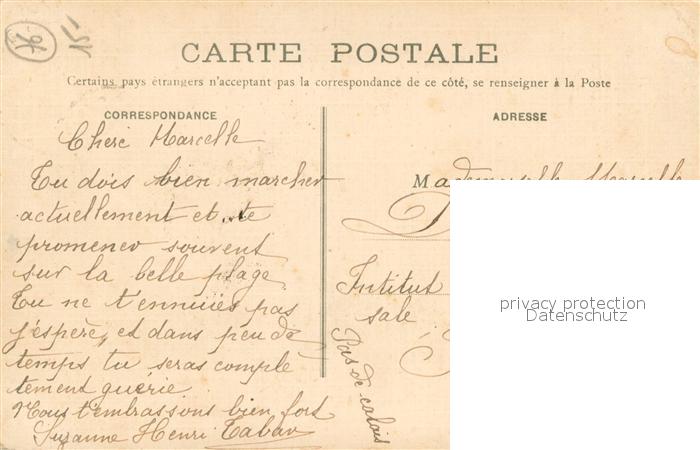 96
15
CARTE POSTALE
Certains pays étrangers n'acceptant pas la correspondance de ce côté, se renseigner à la Poste
CORRESPONDANCE
ADRESSE
Cheré Marcelle
Tu dois bien marcher
actuellement et te
promener souvent
sur la belle plage
Tu ne t'ennuiés pas
j'éspère, et dans peu de
temps tu seras complé
tement guérie
Nous t'embrassons bien fort
Suzanne Henri
Mademoiselle Marcelle
Intitut
sale
Pas de calais
privacy protection
Datenschutz